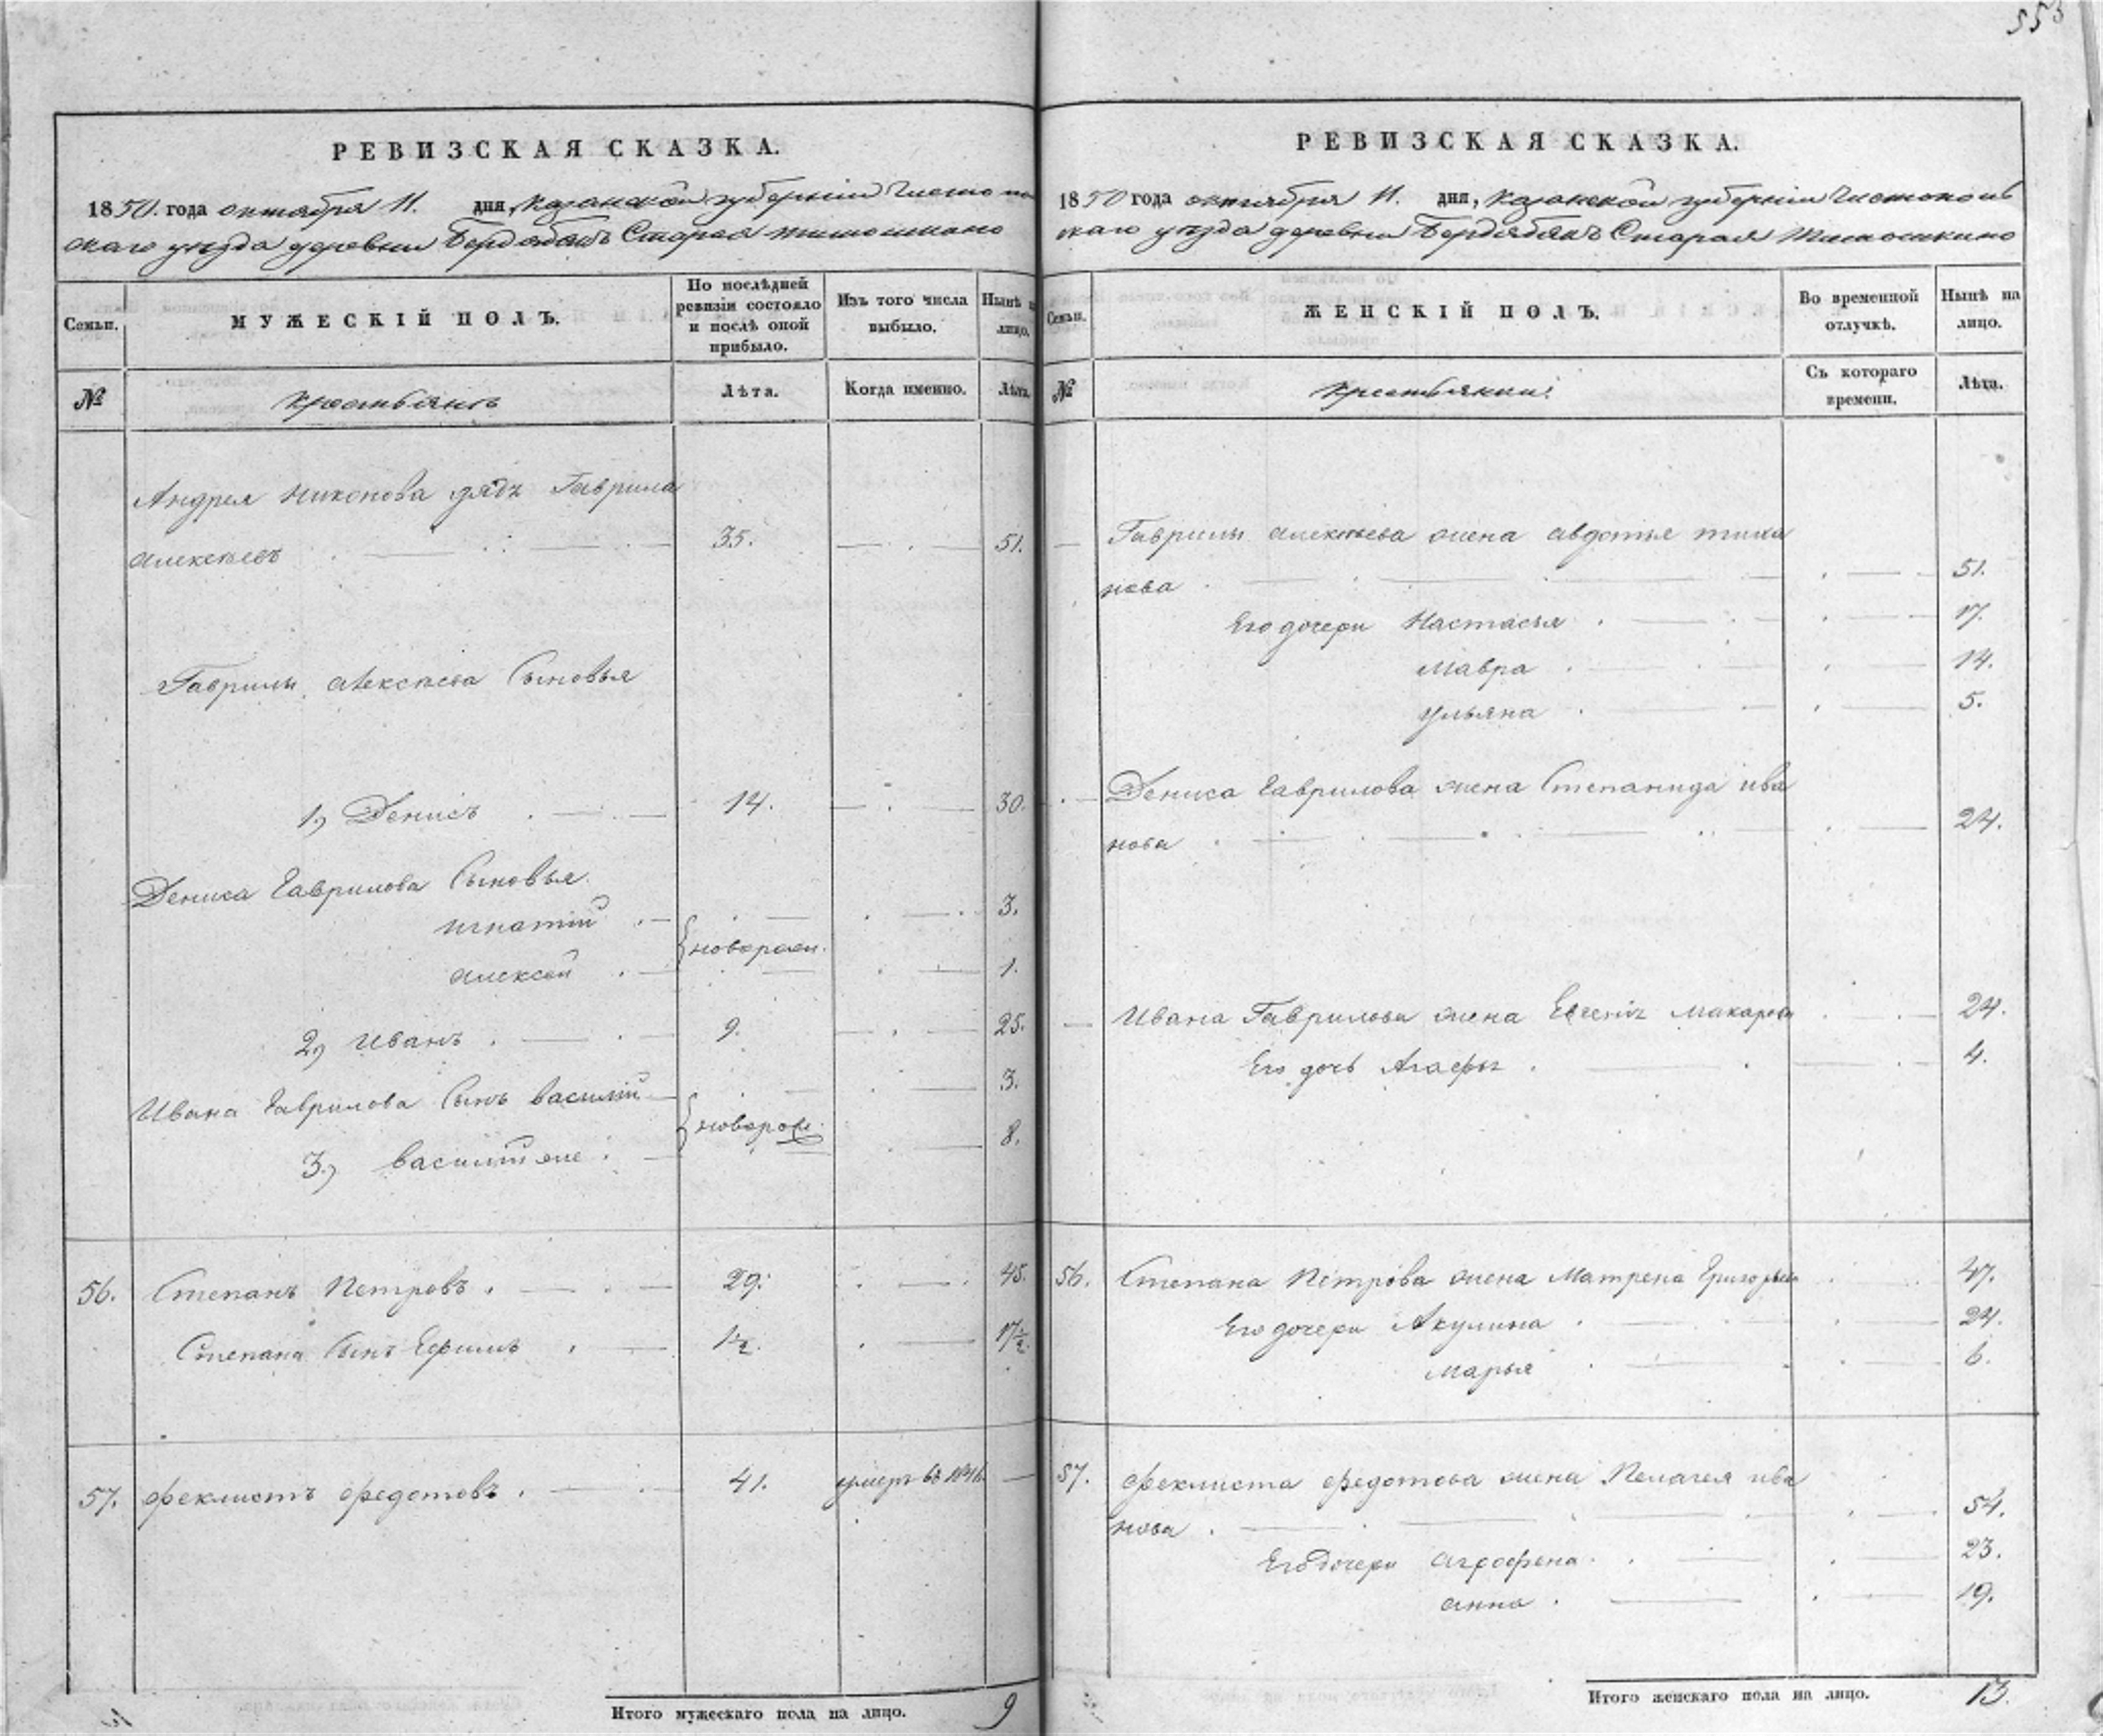 553
РЕВИЗСКАЯ СКАЗКА.
1850. года октября 11. дня, Казанской губерніи Чистопол
скаго уѣзда деревни Бердебякъ Старое тимошкино
Семьи. МУЖЕСКІЙ ПОЛЪ. По послѣдней ревизіи состояло и послѣ оной прибыло. Изъ того числа выбыло. Нынѣ на лицо.
№ крестьянъ Лѣта. Когда именно. Лѣта.
Андрея Никонова дядя Гаврила
алексѣевъ 35. 51.
Гаврилы алексѣева Сыновья
1, Денисъ 14. 30.
Дениса Гаврилова Сыновья
игнатій 3.
новорож.
алексѣй 1.
2, Иванъ 9. 25.
Ивана Гаврилова Сынъ василій 3.
новорож.
3, василій же 8.
56. Степанъ Петровъ 29. 45.
Степана Сынъ Ефимъ 1½. 17½.
57. феклистъ федотовъ 41. умеръ въ 1841
Итого мужескаго пола на лицо. 9
РЕВИЗСКАЯ СКАЗКА.
1850 года октября 11. дня, Казанской губерніи Чистополь
скаго уѣзда деревни Бердебякъ Старая Тимошкино
Семьи. ЖЕНСКІЙ ПОЛЪ. Во временной отлучкѣ. Нынѣ на лицо.
№ крестьянки Съ котораго времени. Лѣта.
Гаврилы алексѣева жена авдотья тиха
нова 51.
Его дочери Настасья 17.
Мавра 14.
Ульяна 5.
Дениса Гаврилова жена Степанида ива
нова 24.
Ивана Гаврилова жена Евгенія макарова 24.
Его дочь Агафья 4.
56. Степана Петрова жена Матрена Григорьева 47.
Его дочери Акулина 24.
Марья 6.
57. феклиста федотова жена Пелагея ива
нова 54.
Его дочери агрофена 23.
анна 19.
Итого женскаго пола на лицо. 13.